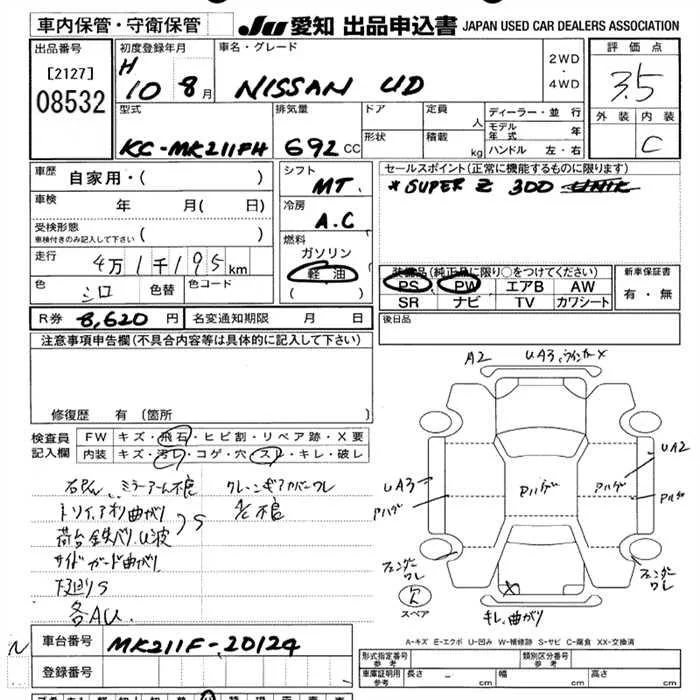 車内保管・守衛保管
JU 愛知 出品申込書 JAPAN USED CAR DEALERS ASSOCIATION
出品番号 初度登録年月 車名・グレード 評価点
[2127] H 2WD
08532 10 8月 NISSAN UD ・ 3.5
4WD
型式 排気量 ドア 定員 人 ディーラー・並行 外装 内装
KC-MK211FH 692cc 形状 積載 kg モデル年式 年 C
ハンドル 左・右
車歴 自家用・( ) シフト MT セールスポイント(正常に機能するものに限ります)
車検 年 月( 日) 冷房 A.C *SUPER Z 300
受検形態
車検付きのみ記入して下さい ( ) 燃料
走行 4万1千195km ガソリン
軽油
( )
装備品(純正品に限り○をつけてください) 新車保証書
色 シロ 色替 色コード PS PW エアB AW 有・無
SR ナビ TV カワシート
R券 8,620円 名変通知期限 月 日 後日品
注意事項申告欄(不具合内容等は具体的に記入して下さい)
修復歴 有(箇所 )
検査員 FW キズ・飛石・ヒビ割・リペア跡・X要
記入欄 内装 キズ・汚レ・コゲ・穴・スレ・キレ・破レ
ミラーアーム不良 クレーンギアカバーワレ
曲がり A/C不良
S
荷台鉄バリ.U.波
サイドガード曲がり
下廻りS
各AU.
A2 UA3,ウインカーX
UA2
UA3
Pハゲ Pハゲ Pハゲ Pハゲ
フェンダーワレ フェンダーワレ
スペア キレ.曲がり
A-キズ E-エクボ U-凹み W-補修跡 S-サビ C-腐食 XX-交換済
N 車台番号 MK211F-20124
登録番号
形式指定番号 参考 類別区分番号 参考
車庫証明用 参考 長さ cm 幅 cm 高さ cm